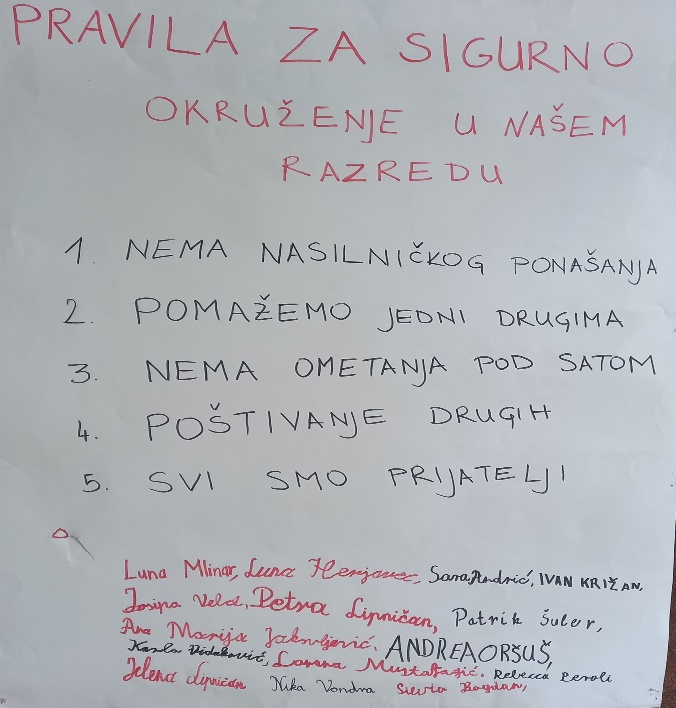 PRAVILA ZA SIGURNO
OKRUŽENJE U NAŠEM
RAZREDU
1. NEMA NASILNIČKOG PONAŠANJA
2. POMAŽEMO JEDNI DRUGIMA
3. NEMA OMETANJA POD SATOM
4. POŠTIVANJE DRUGIH
5. SVI SMO PRIJATELJI
Luna Mlinar, Luna Henjavec, Sara Andrić, IVAN KRIŽAN,
Josipa Petra Lipničan, Patrik Šuler,
Ana Marija Jakovljević. ANDREA ORŠUŠ,
Karla Vidaković, Lorena Mustafagić. Rebecca
Jelena Lipničan Nika Vondra Silvia Bogdan,